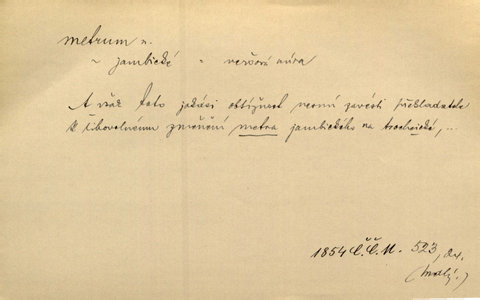 metrum n.
~ jambické = veršová míra
A však tato jakási obtížnost nesmí zavésti překladatele
k libovolnému změnění metra jambického na trochejické, ..
1854 Č.Č.M. 523,
(Malý.)